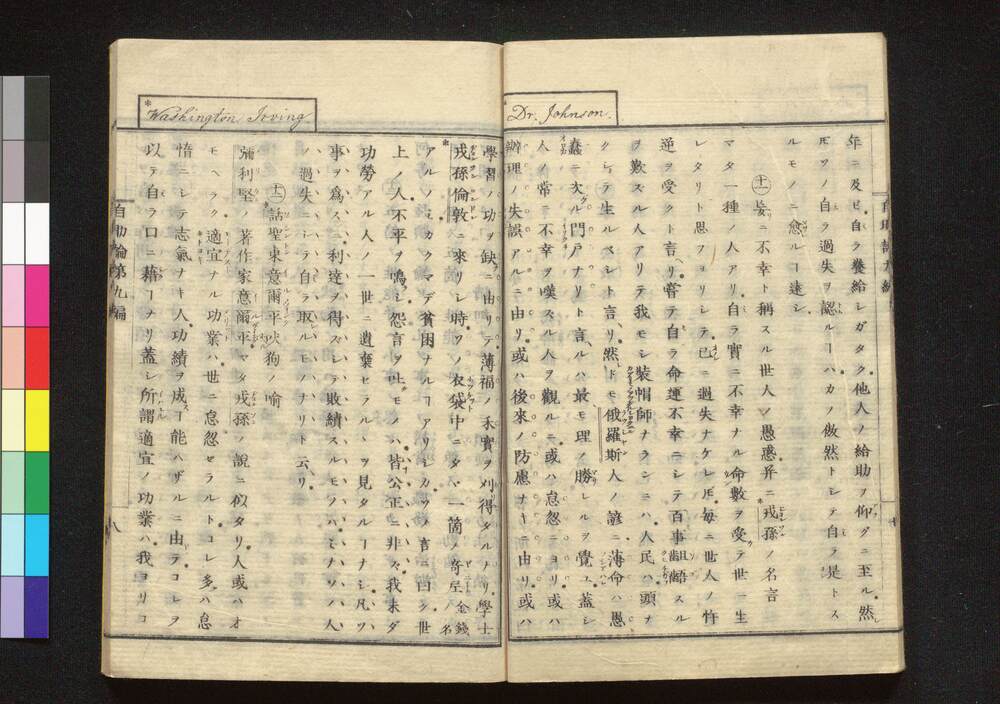 *Dr. Johnson.
年ニ及ビ自ラ養給シガタク他人ノ給助ヲ仰グニ至ル然
𪜈ソノ自ラ過失ヲ認ルヿハカノ傲然トシテ自ラ是トス
ルモノニ愈ルヿ遠シ
十一 妄ニ不幸ト稱スル世人ノ愚惑并ニ戎孫ノ名言
マタ一種ノ人アリ自ラ實ニ不幸ナル命數ヲ受テ世ニ生
レタリト思フヨリシテ已ニ過失ナケレ𪜈毎ニ世人ノ忤
逆ヲ受クト言リ甞テ自ラ命運不幸ニシテ百事齟齬スル
ヲ歎スル人アリテ我モシ裝帽師ナランニハ人民ハ頭ナ
クシテ生ルベシト言リ然ドモ俄羅斯人ノ諺ニ薄命ハ愚
蠢ニ次グ門戸ナリト言ルハ最モ理ノ勝レルヲ覺ユ蓋シ
人ノ常ニ不幸ヲ嘆スル人ヲ觀ルニ或ハ怠忽ニヨリ或ハ
辦理ノ失誤アルニ由リ或ハ後來ノ防慮ナキニ由リ或ハ
*Washington Irving
學習ノ功ヲ缺ニ由リテ薄福ノ禾實ヲ刈得タルノミ學士
*戎孫倫敦ニ來リシ時ソノ衣袋中ニタヾ一箇ノ奇尼金錢ノ名
アルノミカクマデ貧困ナルヿアリシカソノ言ニ曰ク世
上ノ人不平ヲ鳴シ怨言ヲ吐モノハ皆公正ニ非ズ我未ダ
功勞アル人ノ一世ニ遺棄セラルヽヲ見タルヿナシ凡ソ
事ヲ爲スニ利達ヲ得ズシテ敗績スルモノハミナソノ人
ノ過失ニシテ自ラ取ルモノナリト云リ
十二 話聖東意爾平吠狗ノ喩
彌利堅ノ著作家意爾平マタ戎孫ノ說ニ似タリ人或ハオ
モヘラク適宜ナル功業ハ世ニ怠忽セラルトコレ多ハ怠
惰ニシテ志氣ナキ人功績ヲ成ヿ能ハザルニ由ラコレヲ
以テ自ラ口ニ藉ヿナリ蓋シ所謂適宜ノ功業ハ我ヨリコ
自助論第九編
八